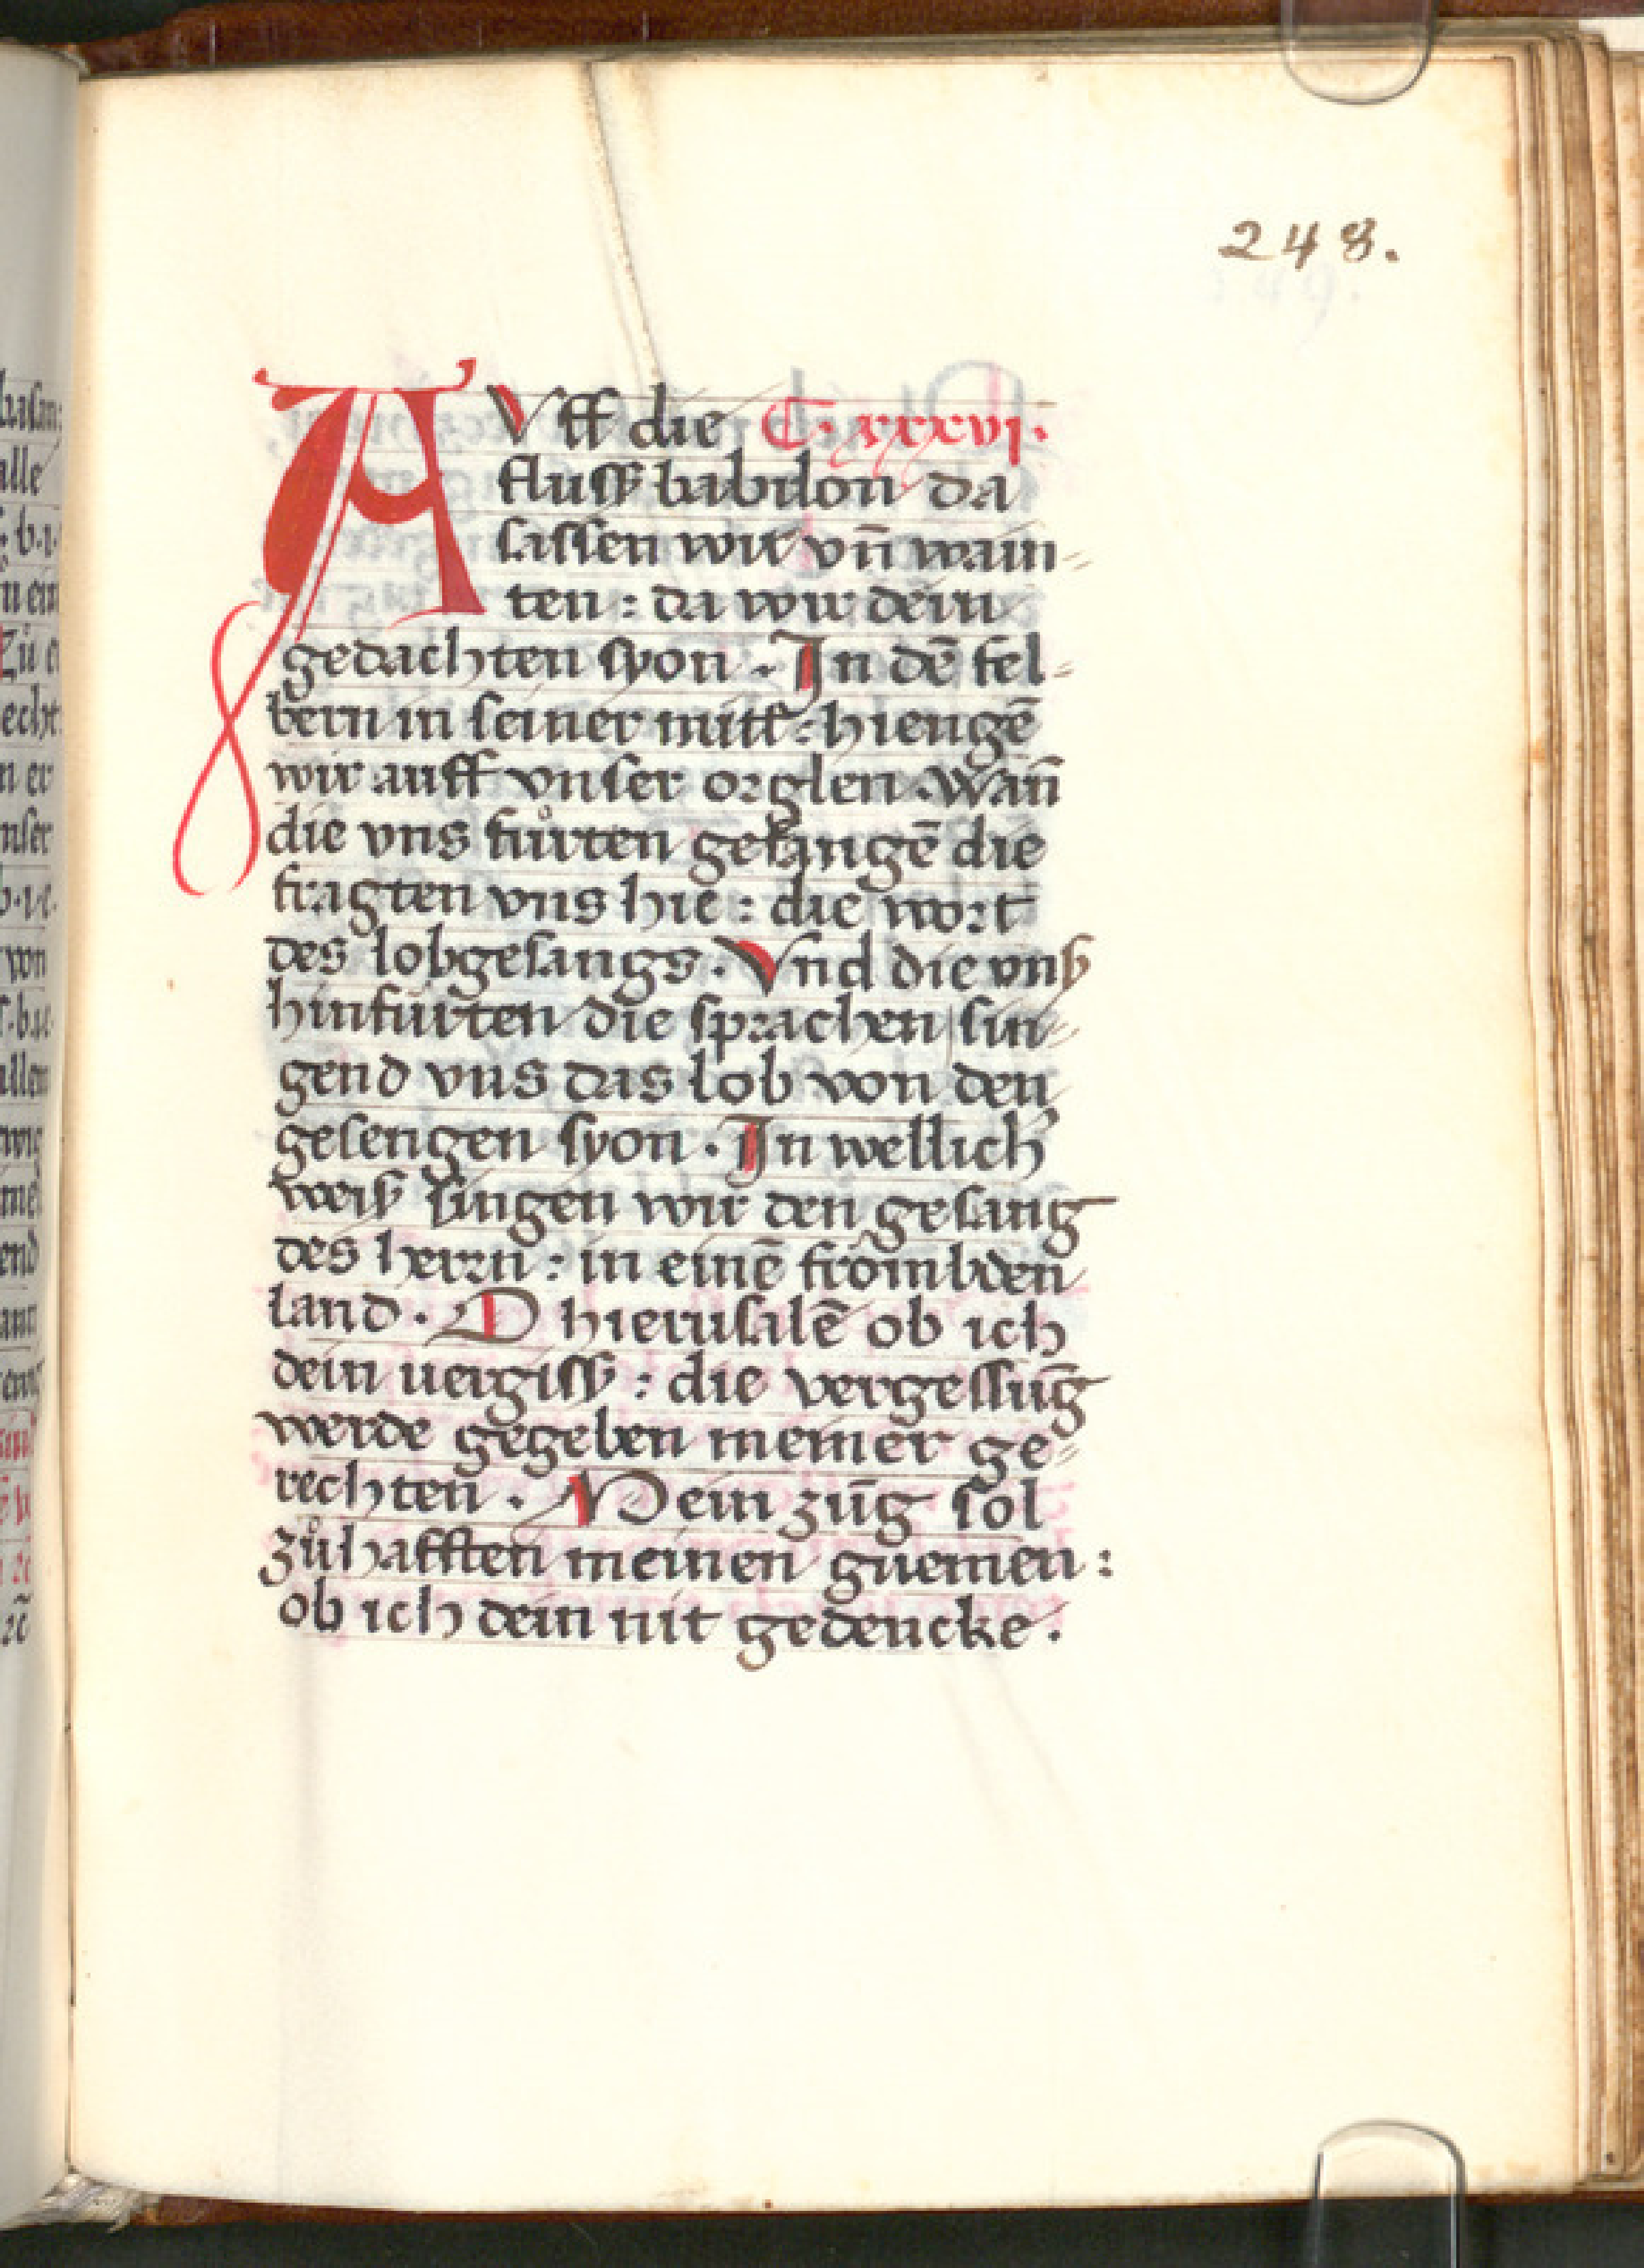 248.
AVff die C. xxxvi.
fluss babilon da
sassen wir vn̄ wain-
ten : da wir dein
gedachten syon . In dē fel-
bern in seiner mitt : hiengē
wir auff vnser orglen . Wan̄
die vns fůrten gefangē die
fragten vns hie : die wort
des lobgesangs . Vnd die vnß
hinfürten die sprachen sin-
gend vns das lob von den
gesengen syon . In wellich
weiß singen wir den gesang
des herrn : in einē frömbden
land . O hierusalē ob ich
dein uergiss : die vergessūg
werde gegeben meiner ge-
rechten . Mein zūg sol
zůhafften meinen guemen :
ob ich dein nit gedencke .